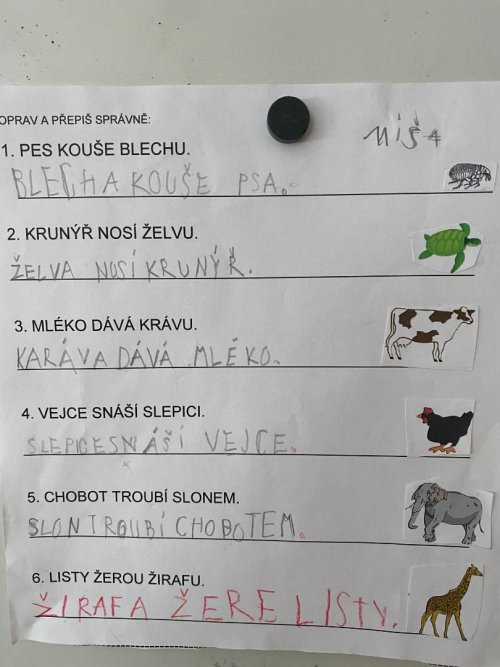 OPRAV A PŘEPIŠ SPRÁVNĚ:
MÍŠA
1. PES KOUŠE BLECHU.
BLECHA KOUŠE PSA.
2. KRUNÝŘ NOSÍ ŽELVU.
ŽELVA NOSÍ KRUNÝŘ.
3. MLÉKO DÁVÁ KRÁVU.
KARÁVA DÁVÁ MLÉKO.
4. VEJCE SNÁŠÍ SLEPICI.
SLEPICE SNÁŠÍ VEJCE.
5. CHOBOT TROUBÍ SLONEM.
SLON TROUBÍ CHOBOTEM.
6. LISTY ŽEROU ŽIRAFU.
ŽIRAFA ŽERE LISTY.